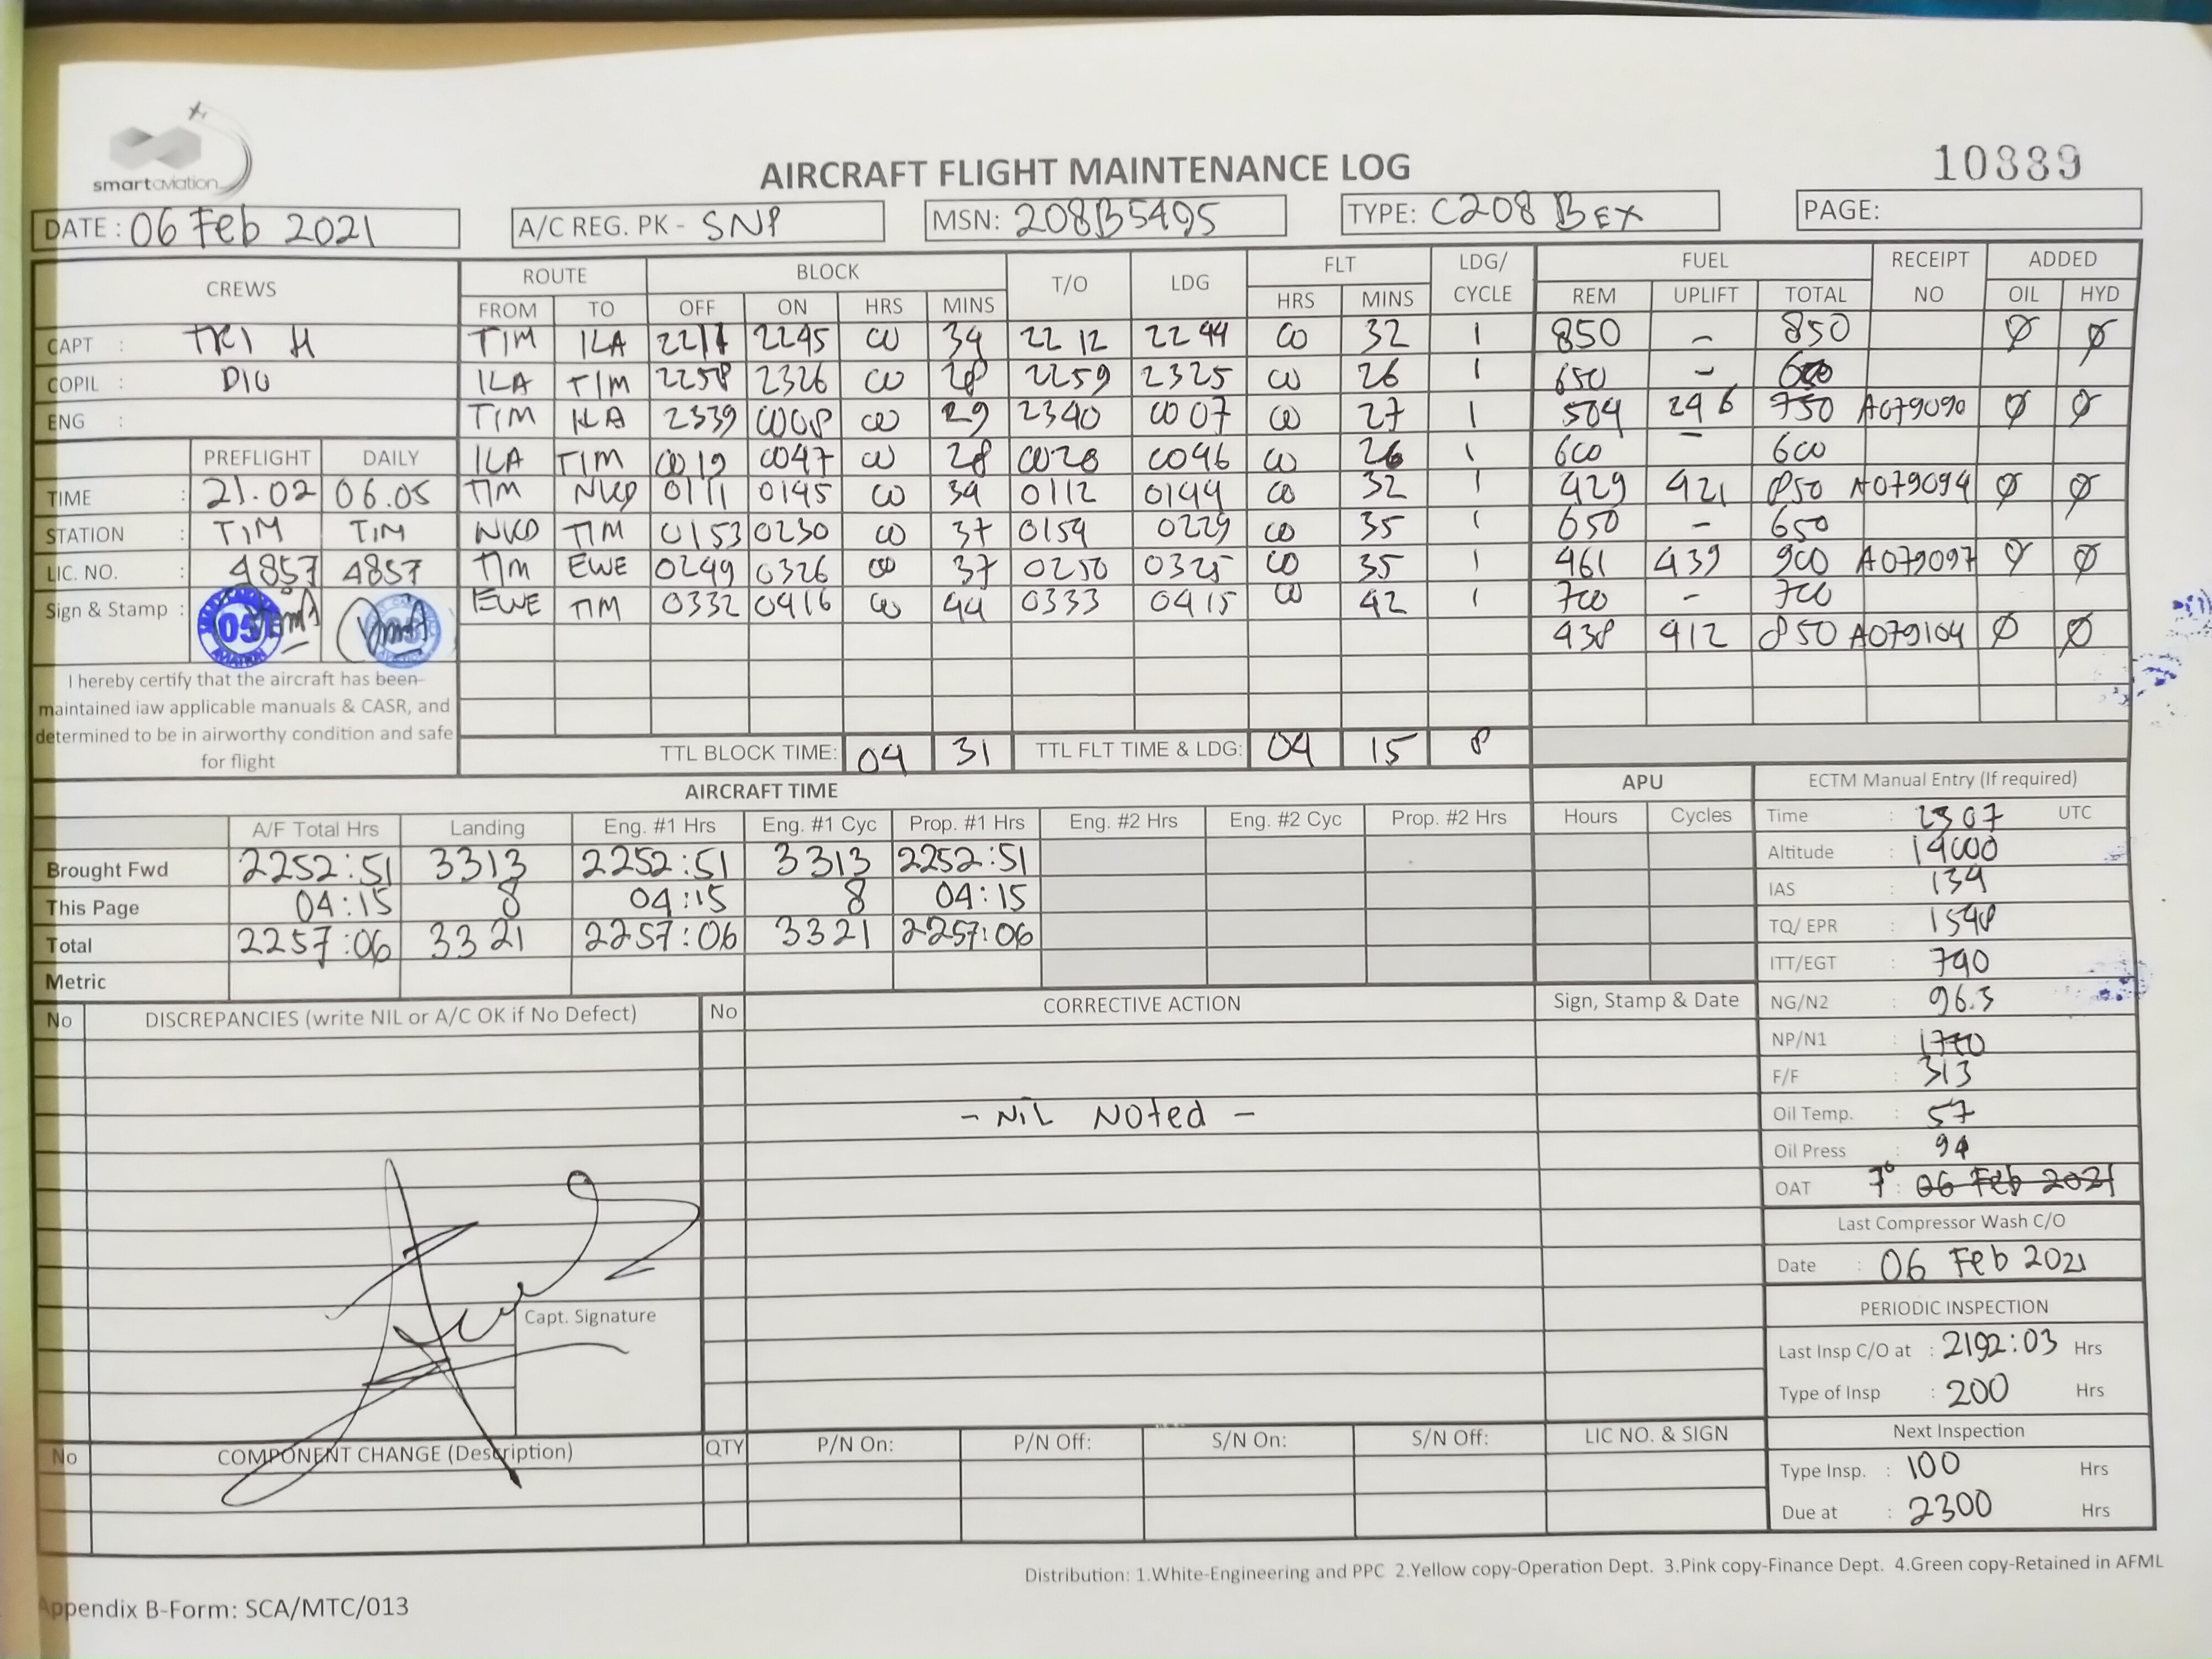 smartaviation
AIRCRAFT FLIGHT MAINTENANCE LOG
10889
DATE : 06 Feb 2021 A/C REG. PK - SNP MSN: 208B5495 TYPE: C208 B EX PAGE:
CREWS ROUTE BLOCK T/O LDG FLT LDG/ CYCLE FUEL RECEIPT NO ADDED
FROM TO OFF ON HRS MINS HRS MINS REM UPLIFT TOTAL OIL HYD
CAPT : TRI H TIM ILA 2211 2245 00 34 22 12 22 44 00 32 1 850 - 850 Ø Ø
COPIL : DIO ILA TIM 2258 2326 00 28 2259 2325 00 26 1 650 -
ENG : TIM ILA 2339 0008 00 29 2340 0007 00 27 1 504 246 750 A079090 Ø Ø
PREFLIGHT DAILY ILA TIM 0019 0047 00 28 0020 0046 00 26 1 600 - 600
TIME : 21.02 06.05 TIM NKD 0111 0145 00 34 0112 0144 00 32 1 429 421 850 A079094 Ø Ø
STATION : TIM TIM NKD TIM 0153 0230 00 37 0154 0229 00 35 1 650 - 650
LIC. NO. : 4857 4857 TIM EWE 0249 0326 00 37 0250 0325 00 35 1 461 439 900 A079097 Ø Ø
Sign & Stamp : EWE TIM 0332 0416 00 44 0333 0415 00 42 1 700 - 700
438 412 850 A079104 Ø Ø
I hereby certify that the aircraft has been
maintained iaw applicable manuals & CASR, and
determined to be in airworthy condition and safe
for flight
TTL BLOCK TIME: 04 31 TTL FLT TIME & LDG: 04 15 8
AIRCRAFT TIME APU ECTM Manual Entry (If required)
A/F Total Hrs Landing Eng. #1 Hrs Eng. #1 Cyc Prop. #1 Hrs Eng. #2 Hrs Eng. #2 Cyc Prop. #2 Hrs Hours Cycles Time : 2307 UTC
Brought Fwd 2252:51 3313 2252:51 3313 2252:51 Altitude : 14000
This Page 04:15 8 04:15 8 04:15 IAS : 134
Total 2257:06 3321 2257:06 3321 2257:06 TQ/ EPR : 1548
Metric ITT/EGT : 740
No DISCREPANCIES (write NIL or A/C OK if No Defect) No CORRECTIVE ACTION Sign, Stamp & Date NG/N2 : 96.3
NP/N1 :
F/F : 313
- NIL Noted - Oil Temp. : 57
Oil Press : 94
OAT : 7° 06 Feb 2021
Last Compressor Wash C/O
Date : 06 Feb 2021
Capt. Signature PERIODIC INSPECTION
Last Insp C/O at : 2192:03 Hrs
Type of Insp : 200 Hrs
No COMPONENT CHANGE (Description) QTY P/N On: P/N Off: S/N On: S/N Off: LIC NO. & SIGN Next Inspection
Type Insp. : 100 Hrs
Due at : 2300 Hrs
Distribution: 1.White-Engineering and PPC 2.Yellow copy-Operation Dept. 3.Pink copy-Finance Dept. 4.Green copy-Retained in AFML
Appendix B-Form: SCA/MTC/013